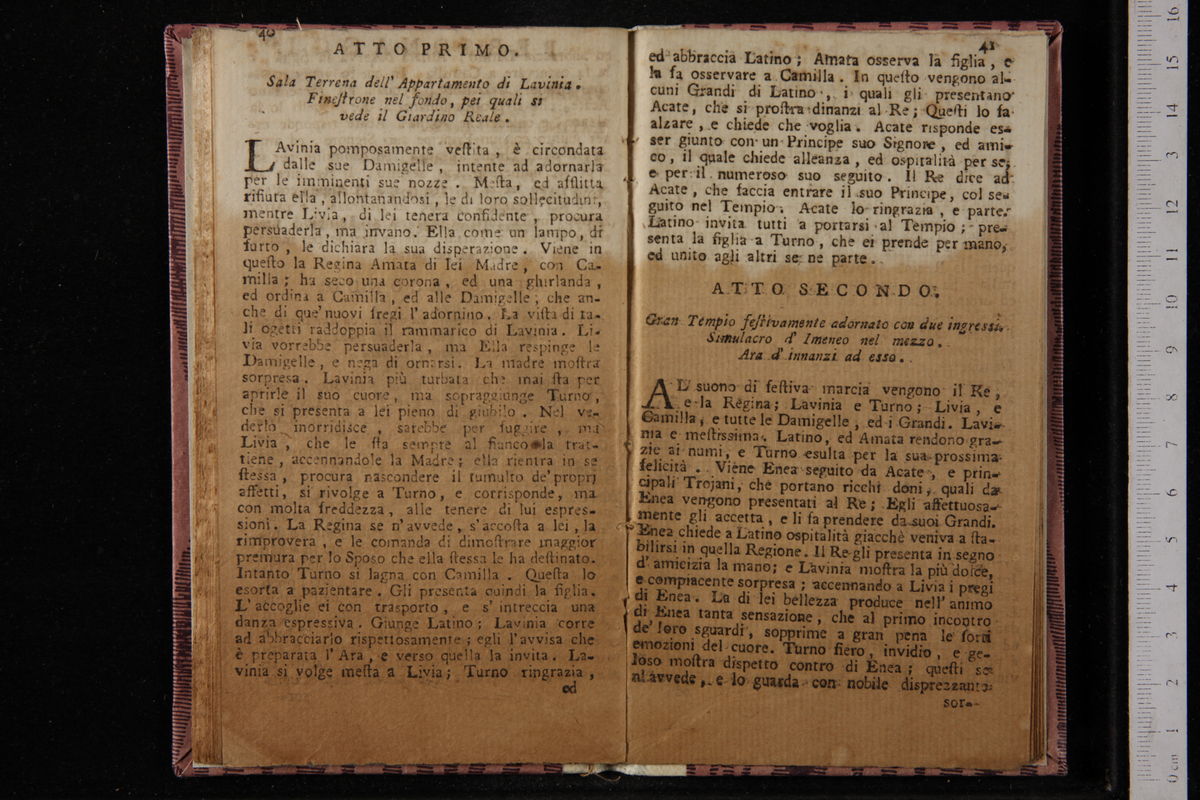 40
ATTO PRIMO.
Sala Terrena dell' Appartamento di Lavinia.
Fineſtrone nel fondo, pei quali si
vede il Giardino Reale.
LAvinia pomposamente veſtita, è circondata
dalle sue Damigelle, intente ad adornarla
per le imminenti sue nozze. Meſta, ed afflitta
rifiuta ella, allontanandosi, le di loro sollecitudini,
mentre Livia, di lei tenera confidente, procura
persuaderla, ma invano. Ella come un lampo, di
furto, le dichiara la sua disperazione. Viene in
queſto la Regina Amata di lei Madre, con Ca-
milla; ha seco una corona, ed una ghirlanda,
ed ordina a Camilla, ed alle Damigelle, che an-
che di que' nuovi fregi l' adornino. La viſta di ta-
li ogetti raddoppia il rammarico di Lavinia. Li-
via vorrebbe persuaderla, ma Ella respinge le
Damigelle, e nega di ornarsi. La madre moſtra
sorpresa. Lavinia più turbata che mai ſta per
aprirle il suo cuore, ma sopraggiunge Turno,
che si presenta a lei pieno di giubilo. Nel ve-
derlo inorridisce, sarebbe per fuggire, ma
Livia, che le ſta sempre al fianco la trat-
tiene, accennandole la Madre; ella rientra in se
ſtessa, procura nascondere il tumulto de' proprj
affetti, si rivolge a Turno, e corrisponde, ma
con molta freddezza, alle tenere di lui espres-
sioni. La Regina se n' avvede, s' accoſta a lei, la
rimprovera, e le comanda di dimoſtrare maggior
premura per lo Sposo che ella ſtessa le ha deſtinato.
Intanto Turno si lagna con Camilla. Queſta lo
esorta a pazientare. Gli presenta quindi la figlia.
L' accoglie ei con trasporto, e s' intreccia una
danza espressiva. Giunge Latino; Lavinia corre
ad abbracciarlo rispettosamente; egli l' avvisa che
è preparata l' Ara, e verso quella la invita. La-
vinia si volge meſta a Livia; Turno ringrazia,
ed
41
ed abbraccia Latino; Amata osserva la figlia, e
la fa osservare a Camilla. In queſto vengono al-
cuni Grandi di Latino, i quali gli presentano
Acate, che si proſtra dinanzi al Re; Queſti lo fa
alzare, e chiede che voglia. Acate risponde es-
ser giunto con un Principe suo Signore, ed ami-
co, il quale chiede alleanza, ed ospitalità per se,
e per il numeroso suo seguito. Il Re dice ad
Acate, che faccia entrare il suo Principe, col se-
guito nel Tempio. Acate lo ringrazia, e parte.
Latino invita tutti a portarsi al Tempio; pre-
senta la figlia a Turno, che ei prende per mano,
ed unito agli altri se ne parte.
ATTO SECONDO.
Gran Tempio feſtivamente adornato con due ingressi.
Simulacro d' Imeneo nel mezzo.
Ara d' innanzi ad esso.
AL suono di feſtiva marcia vengono il Re,
e la Regina; Lavinia e Turno; Livia, e
Camilla, e tutte le Damigelle, ed i Grandi. Lavi-
nia e meſtissima. Latino, ed Amata rendono gra-
zie ai numi, e Turno esulta per la sua prossima
felicità. Viene Enea seguito da Acate, e prin-
cipali Trojani, che portano ricchi doni, quali da
Enea vengono presentati al Re; Egli affettuosa-
mente gli accetta, e li fa prendere da suoi Grandi.
Enea chiede a Latino ospitalità giacchè veniva a ſta-
bilirsi in quella Regione. Il Re gli presenta in segno
d' amicizia la mano; e Lavinia moſtra la più dolce,
e compiacente sorpresa; accennando a Livia i pregi
di Enea. La di lei bellezza produce nell' animo
di Enea tanta sensazione, che al primo incontro
de' loro sguardi, sopprime a gran pena le forti
emozioni del cuore. Turno fiero, invidio, e ge-
loso moſtra dispetto contro di Enea; queſti se
n' avvede, e lo guarda con nobile disprezzante
sor-
0 cm 1 2 3 4 5 6 7 8 9 10 11 12 13 14 15 16